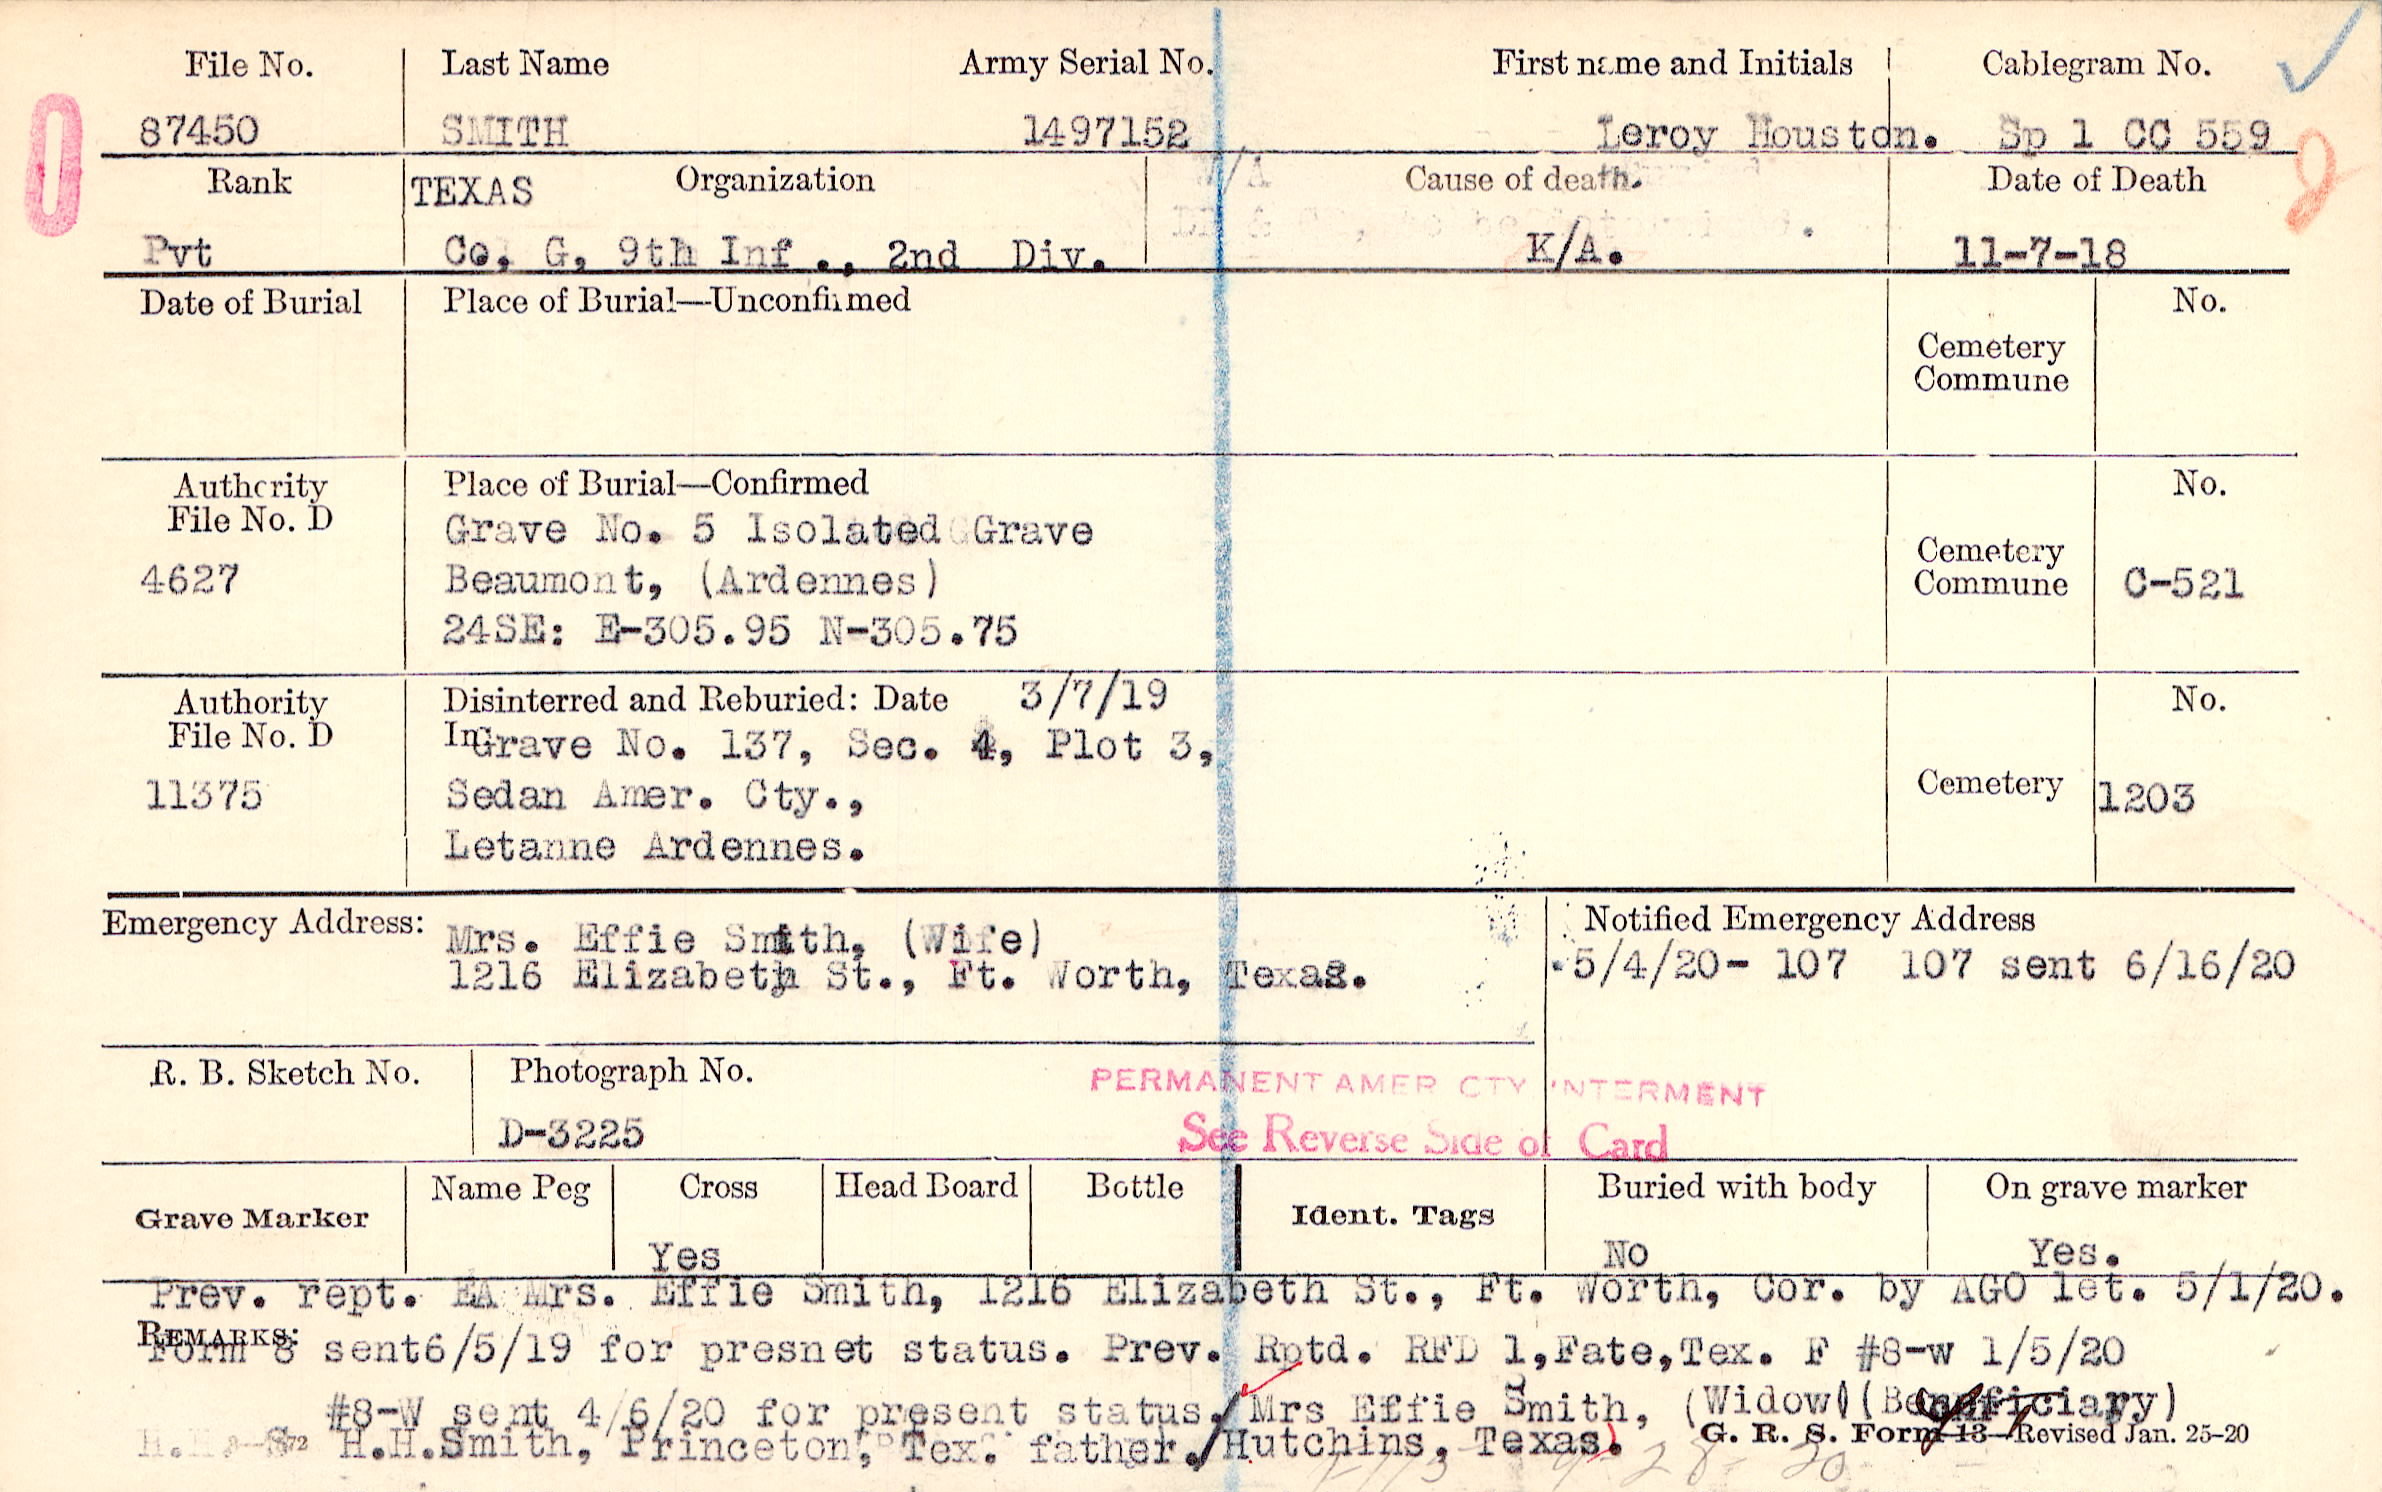 File No. Last Name Army Serial No. First name and Initials Cablegram No.
87450 SMITH 1497152 Leroy Houston. Sp 1 CC 559
Rank TEXAS Organization Cause of death. Date of Death
Pvt Co. G, 9th Inf ., 2nd Div. K/A. 11-7-18
Date of Burial Place of Burial—Unconfirmed No.
Cemetery
Commune
Authority Place of Burial—Confirmed No.
File No. D Grave No. 5 Isolated Grave
Cemetery
4627 Beaumont, (Ardennes) Commune C-521
24SE: E-305.95 N-305.75
Authority Disinterred and Reburied: Date 3/7/19 No.
File No. D In Grave No. 137, Sec. 4, Plot 3,
11375 Sedan Amer. Cty., Cemetery 1203
Letanne Ardennes.
Emergency Address: Mrs. Effie Smith, (Wife) Notified Emergency Address
1216 Elizabeth St., Ft. Worth, Texas. 5/4/20- 107 107 sent 6/16/20
R. B. Sketch No. Photograph No. PERMANENT AMER CTY INTERMENT
D-3225 See Reverse Side of Card
Grave Marker Name Peg Cross Head Board Bottle Ident. Tags Buried with body On grave marker
Yes No Yes.
Prev. rept. EA Mrs. Effie Smith, 1216 Elizabeth St., Ft. Worth, Cor. by AGO let. 5/1/20.
REMARKS: Form 8 sent6/5/19 for presnet status. Prev. Rptd. RFD 1,Fate,Tex. F #8-w 1/5/20
#8-W sent 4/6/20 for present status. Mrs Effie Smith, (Widow) (Beneficiary)
H.H.Smith, Princeton, Tex. father. Hutchins, Texas. G. R. S. Form 13—Revised Jan. 25-20